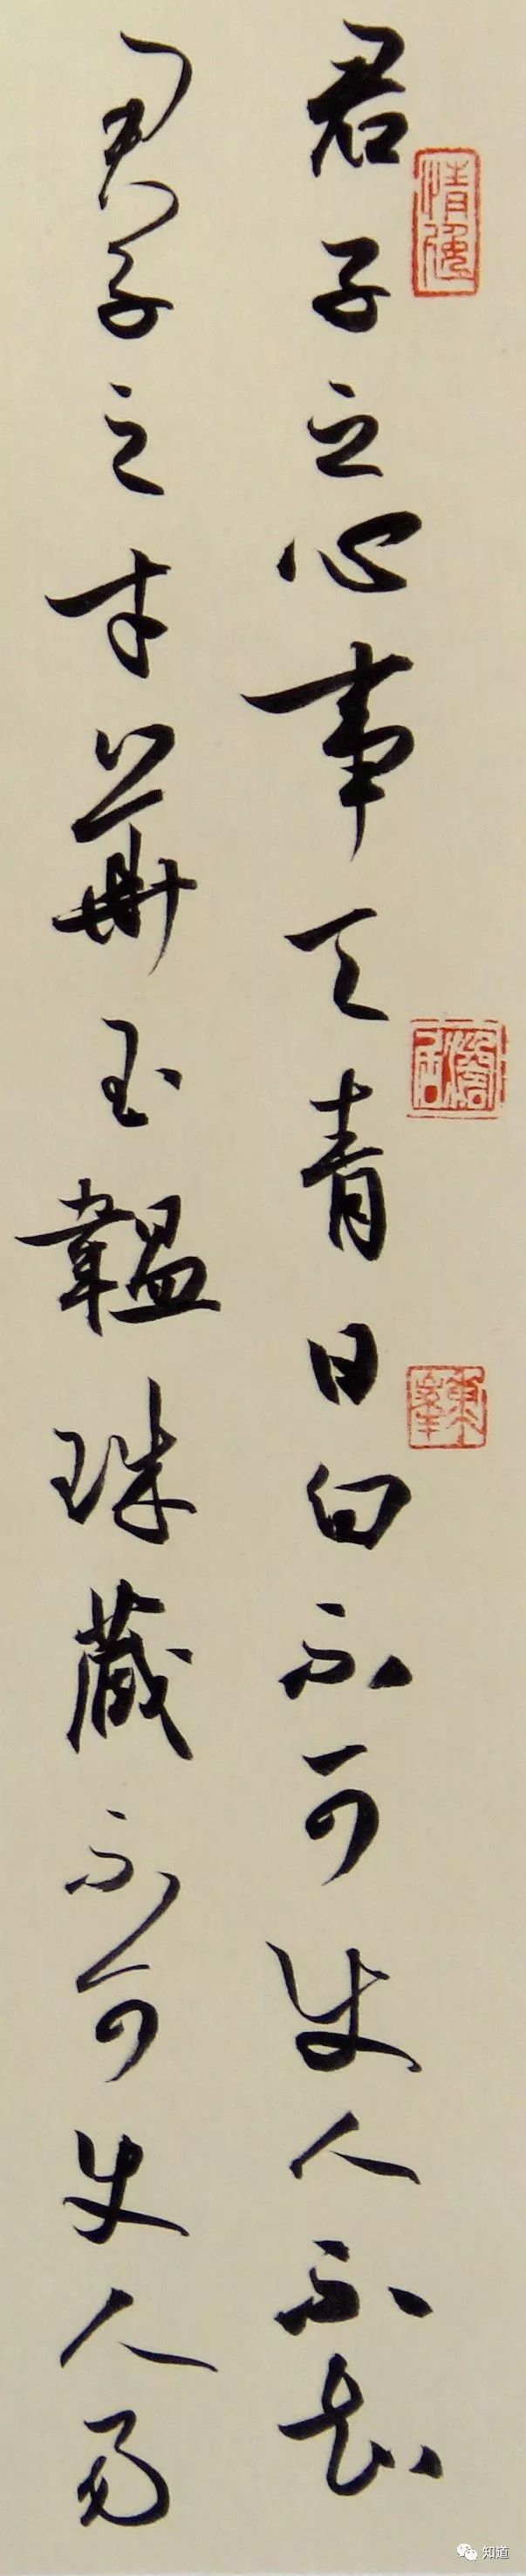 君子之心事天青日白不可使人不知
君子之才華玉韞珠藏不可使人易
知道